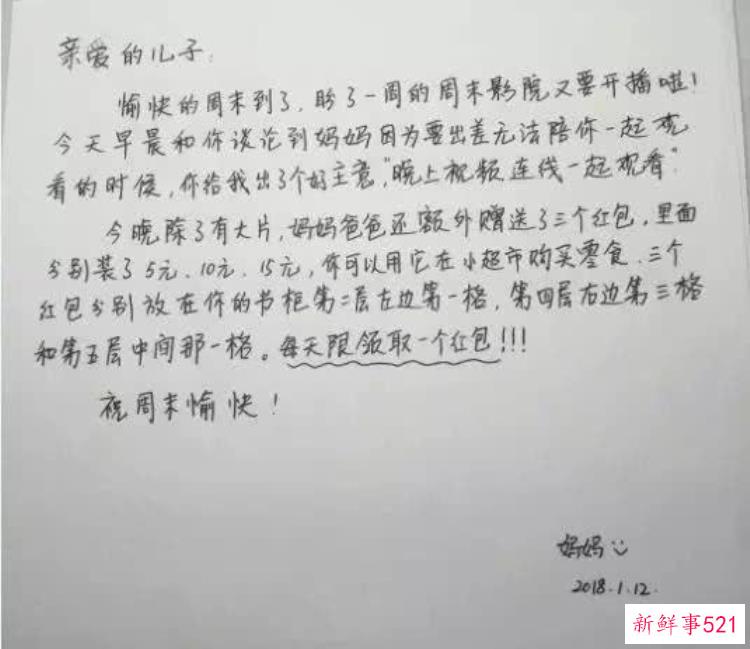 亲爱的儿子:
愉快的周末到了,盼了一周的周末影院又要开播啦!
今天早晨和你谈论到妈妈因为要出差无法陪你一起观
看的时候,你给我出了个好主意,"晚上视频连线一起观看"
今晚除了有大片,妈妈爸爸还额外赠送了三个红包,里面
分别装了5元、10元、15元,你可以用它在小超市购买零食.三个
红包分别放在你的书柜第二层左边第一格,第四层右边第三格
和第五层中间那一格。每天限领取一个红包!!!
祝周末愉快!
妈妈
2018.1.12.
新鲜事521